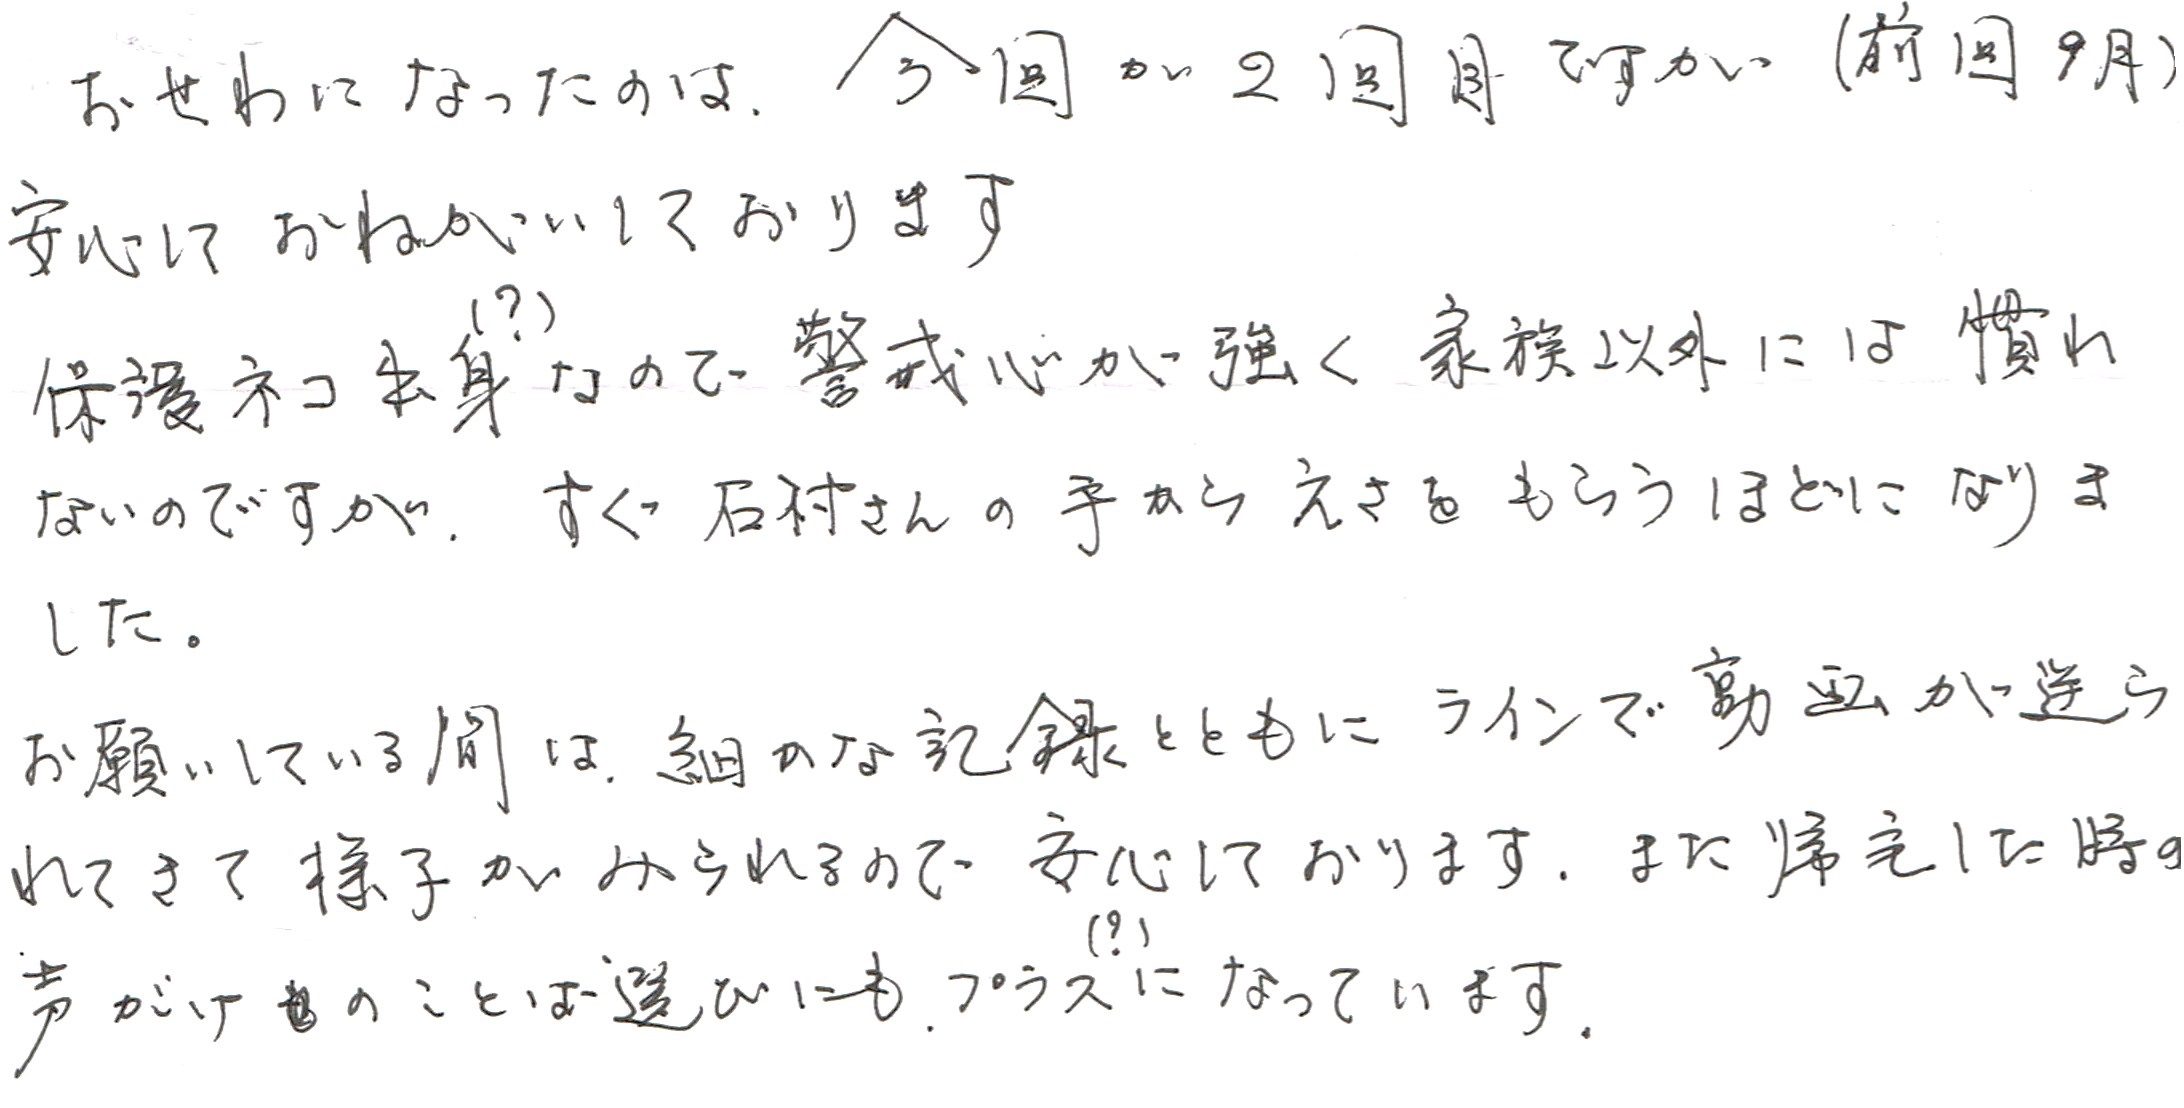 おせわになったのは、今回が2回目ですが(前回9月)
安心しておねがいしております
保護ネコ出身(?)なので警戒心が強く家族以外には慣れ
ないのですが、すぐ石村さんの手からえさをもらうほどになりま
した。
お願いしている間は、細かな記録とともにラインで動画が送ら
れてきて様子がみられるので安心しております。また帰宅した時の
声がけのことば選びにも、プラス(?)になっています。